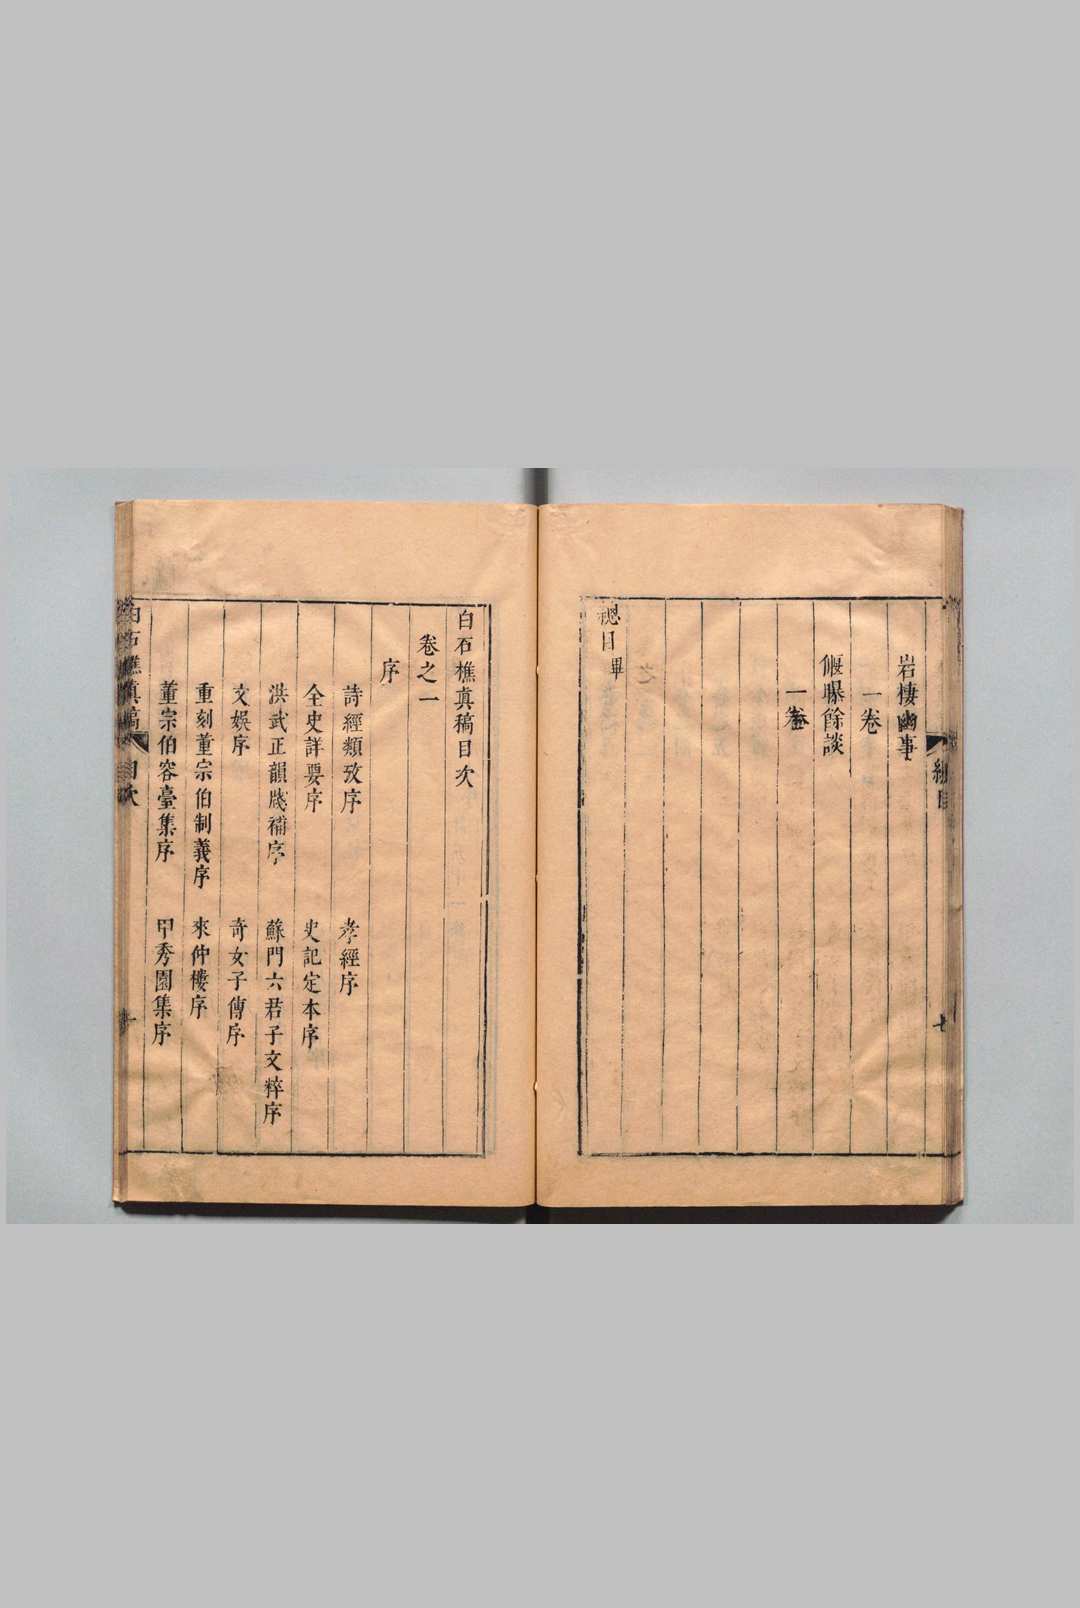 岩棲幽事
一卷
偃曝餘談
一卷
總目畢
七
白石樵真稿目次
卷之一
序
詩經類攷序
孝經序
全史詳要序
史記定本序
洪武正韻牋補序
蘇門六君子文粹序
文娛序
奇女子傳序
重刻董宗伯制義序
來仲樓序
董宗伯容臺集序
甲秀園集序
白石樵真稿
目次